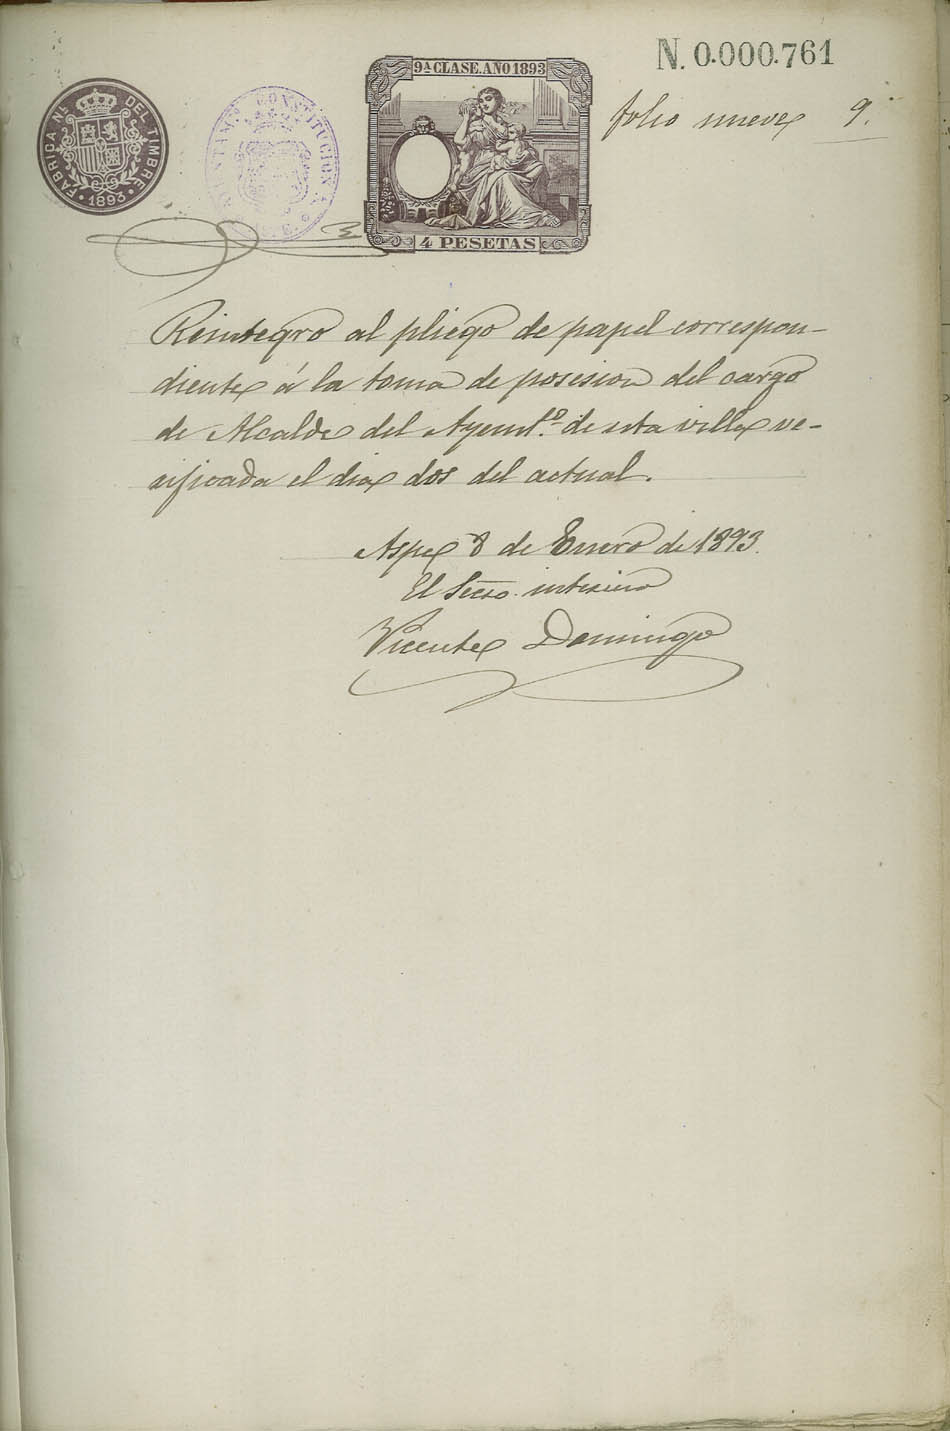 N. 0.000.761
9ª CLASE. AÑO 1893
folio nueve 9.
FABRICA NL. DEL TIMBRE
1893
AYUNTAMTO CONSTITUCIONAL
4 PESETAS
Reintegro al pliego de papel correspon-
diente á la toma de posesion del cargo
de Alcalde del Ayunt.º de esta villa ve-
rificada el dia dos del actual.
Aspe 8 de Enero de 1893.
El Secro. interino
Vicente Domingo